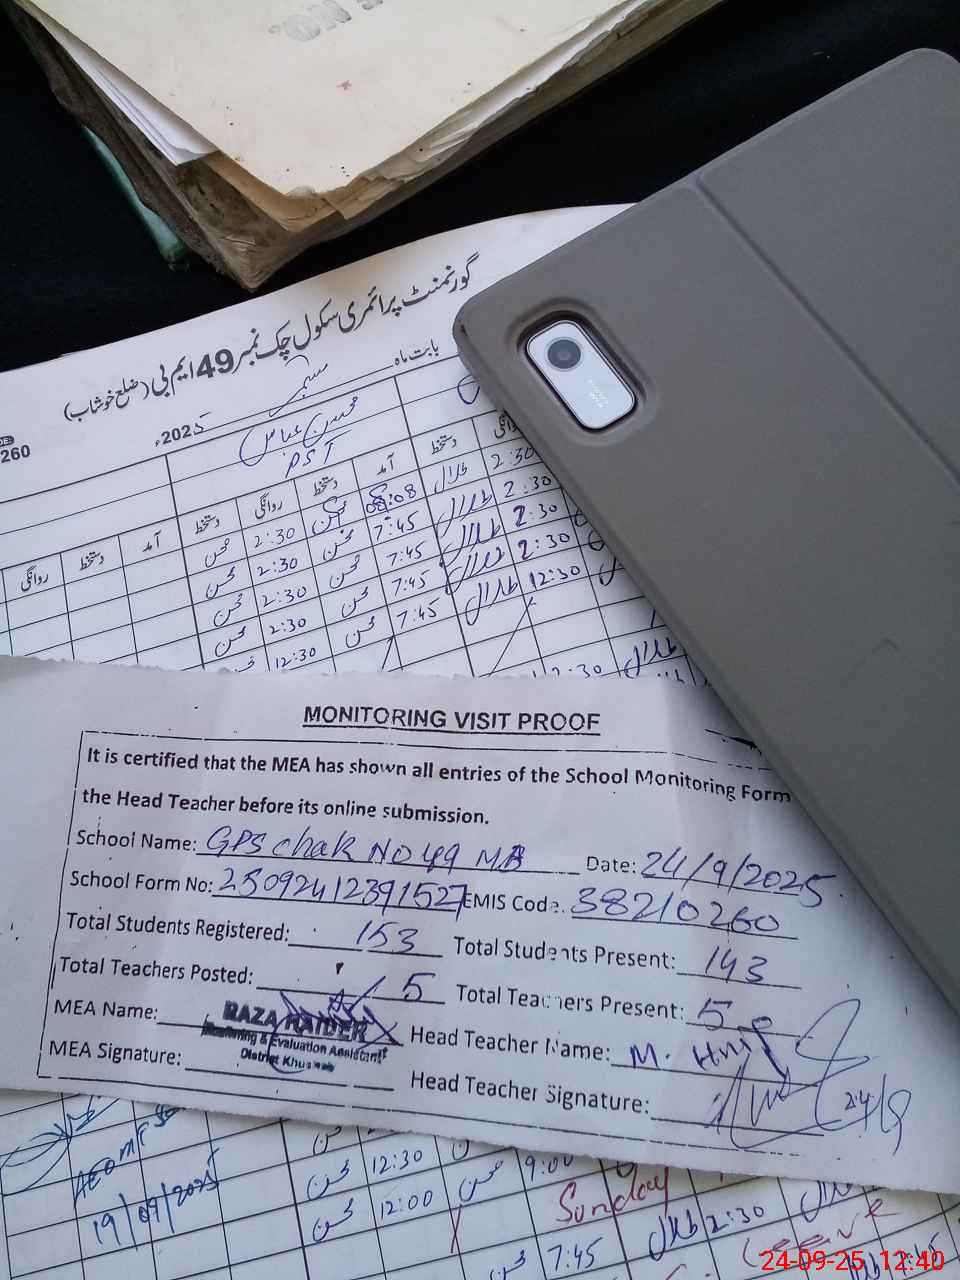 گورنمنٹ پرائمری سکول چک نمبر 49 ایم بی (ضلع خوشاب)
بابت ماہ ستمبر 2025ء
260
محسن عباس
PST
روانگی دستخط آمد دستخط روانگی دستخط آمد دستخط
محسن 2:30 محسن 08:08 طلال 2:30
محسن 2:30 محسن 7:45 طلال 2:30
محسن 2:30 محسن 7:45 طلال 2:30
محسن 2:30 محسن 7:45 طلال 2:30
12:30 محسن 7:45 طلال 12:30
2:30 طلال
MONITORING VISIT PROOF
It is certified that the MEA has shown all entries of the School Monitoring Form
the Head Teacher before its online submission.
School Name: GPS Chak NO 49 MB Date: 24/9/2025
School Form No: 25092412391527 EMIS Code: 38210260
Total Students Registered: 153 Total Students Present: 143
Total Teachers Posted: 5 Total Teachers Present: 5
MEA Name: RAZA HAIDER Head Teacher Name: M.
Monitoring & Evaluation Assistant
District Khushab
MEA Signature: Head Teacher Signature: 24/9
AEO
19/09/2025
محسن 12:30 محسن 9:00
محسن 12:00
Sunday
محسن 7:45 طلال 2:30 طلال
Leave
7:45
24-09-25 12:40